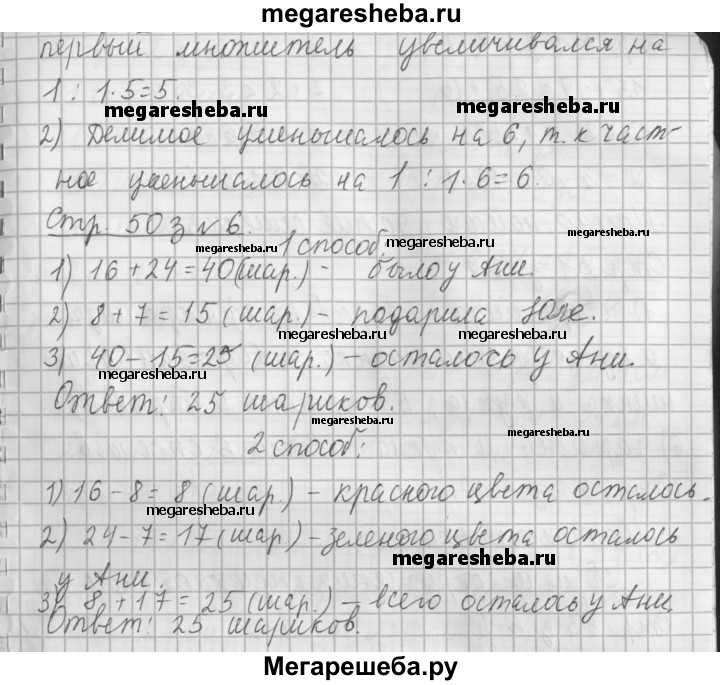 megaresheba.ru
первый множитель увеличивался на
1 : 1·5=5.
megaresheba.ru
megaresheba.ru
2) Делимое уменьшалось на 6, т.к част-
ное уменьшалось на 1 : 1·6=6.
Стр. 50 з №6.
megaresheba.ru
1 способ:
megaresheba.ru
1) 16+24=40(шар.) - было у Ани.
megaresheba.ru
2) 8+7=15 (шар.) - подарила Юле.
megaresheba.ru
megaresheba.ru
3) 40-15=25 (шар.) - осталось у Ани.
megaresheba.ru
Ответ: 25 шариков.
megaresheba.ru
2 способ:
1) 16-8=8 (шар.) - красного цвета осталось.
megaresheba.ru
2) 24-7=17 (шар.) - зеленого цвета осталось
megaresheba.ru
у Ани.
3) 8+17=25 (шар.) - всего осталось у Ани.
megaresheba.ru
Ответ: 25 шариков.
megaresheba.ru
Мегарешеба.ру